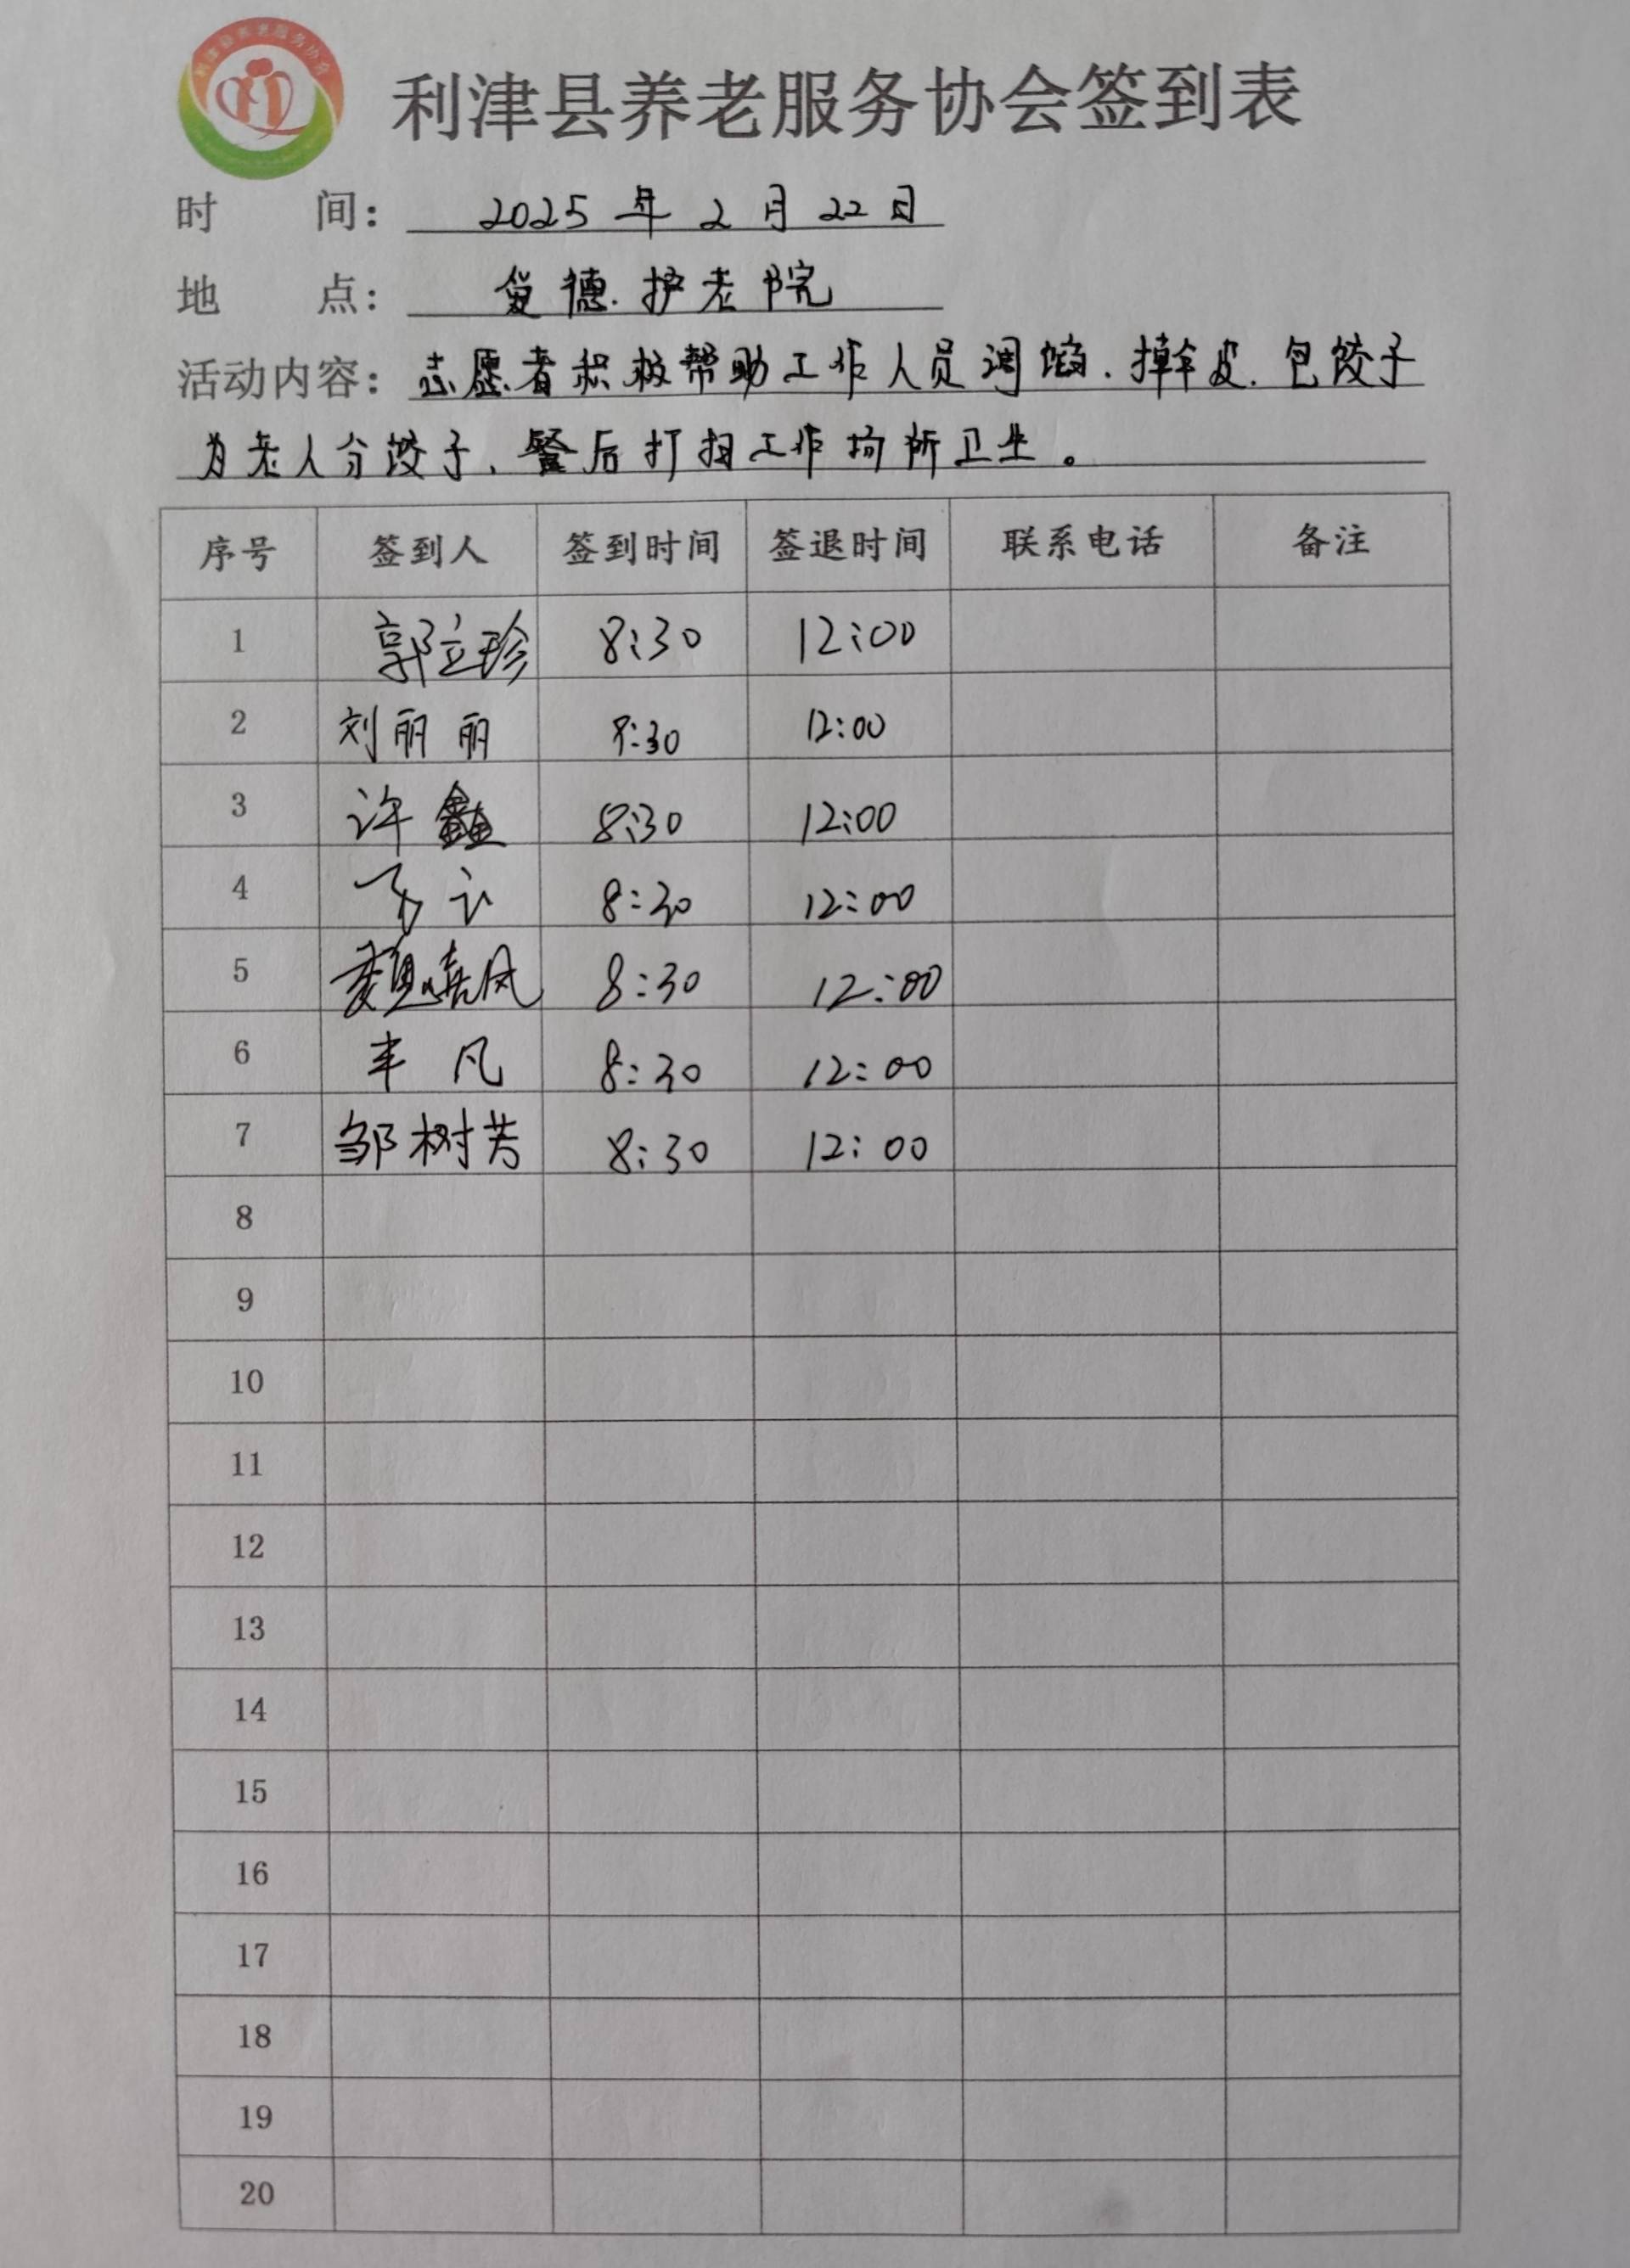 利津县养老服务协会
利津县养老服务协会签到表
时 间: 2025年2月22日
地 点: 德护老院
活动内容: 志愿者积极帮助工作人员调馅.擀皮.包饺子
为老人分饺子、餐后打扫工作场所卫生。
序号 签到人 签到时间 签退时间 联系电话 备注
1 郭立珍 8:30 12:00
2 刘丽丽 8:30 12:00
3 许鑫 8:30 12:00
4 8:30 12:00
5 魏春风 8:30 12:00
6 丰凡 8:30 12:00
7 邹树芳 8:30 12:00
8
9
10
11
12
13
14
15
16
17
18
19
20